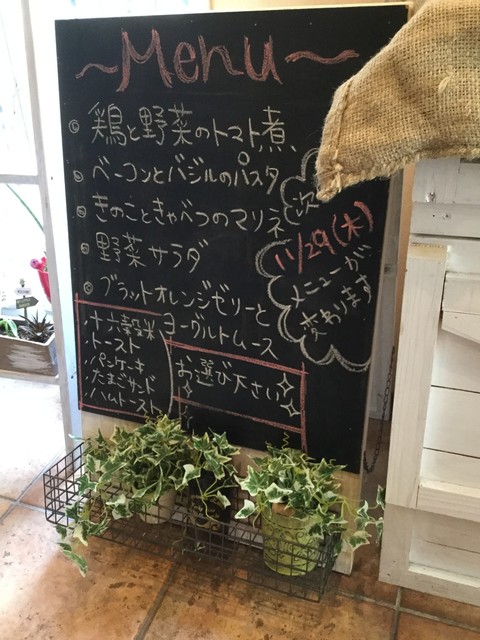 ~Menu~
鶏と野菜のトマト煮
ベーコンとバジルのパスタ
きのこときゃべつのマリネ
野菜サラダ
ブラットオレンジゼリーと
ヨーグルトムース
十六穀米
トースト
パンケーキ
たまごサンド
ハムトースト
お選び下さい
次
11/29(木)
メニューが
変わります